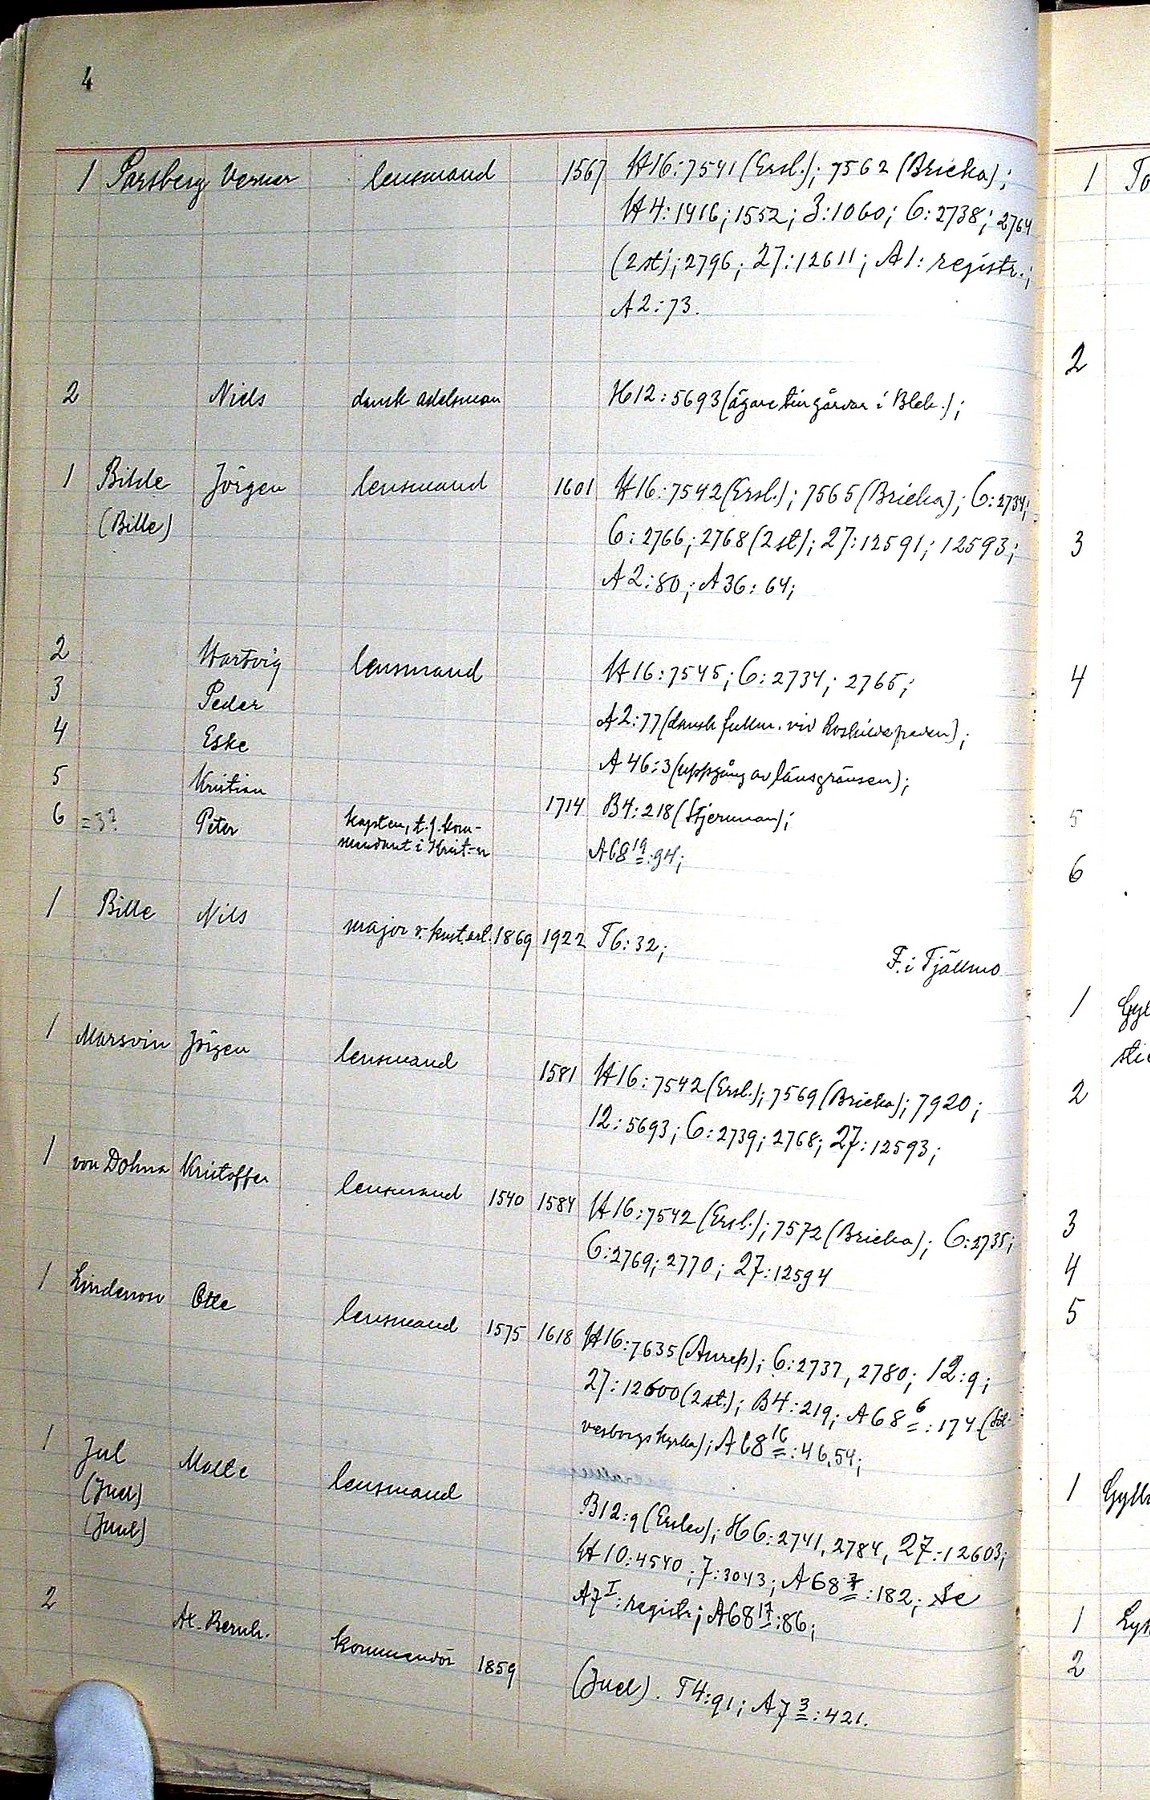 4
1 Parsberg Verner lensmand 1567 H16:7541 (Ersl.); 7562 (Bricka);
H4:1416; 1552; 3:1060; 6:2738; 2764
(2st); 2796; 27:12611; A1: registr.;
A2:73.
2 Niels dansk adelsman H12:5693 (ägare tingårdar i Blek.);
1 Bilde Jörgen lensmand 1601 H16:7542 (Ersl.); 7565 (Bricka); 6:2734;
(Bille) 6:2766; 2768 (2st); 27:12591; 12593;
A2:80; A36:64;
2 Hartvig lensmand H16:7545; 6:2734; 2765;
3 Peder A2:77 (dansk fullm. vid Roskildefreden);
4 Eske A46:3 (uppgång av länsgränsen);
5 Kristian 1714 B4:218 (Stjernman);
6 =3? Peter kapten, t.f. kom-
mendant i Krist-n A68 19:94;
1 Bille Nils major v. kust.art. 1869 1922 T6:32;
F. i Tjällmo
1 Marsvin Jörgen lensmand 1581 H16:7542 (Ersl.); 7569 (Bricka); 7920;
12:5693; 6:2739; 2768; 27:12593;
1 von Dohna Kristoffer lensmand 1540 1584 H16:7542 (Ersl.); 7572 (Bricka); 6:2735;
6:2769; 2770; 27:12594
1 Lindenow Otte lensmand 1575 1618 H16:7635 (Anrep); 6:2737, 2780; 12:9;
27:12600 (2st.); B4:219; A68 6:174 (Söl-
vesborgs kyrka); A68 16:46,54;
1 Jul Malte lensmand
(Juel) B12:9 (Erslev); H6:2741, 2784, 27:12603;
(Juul) H10:4540; 7:3043; A68 7:182; Se
A7 I: registr; A68 17:86;
2 Ax. Bernh. kommendör 1859 (Juel). T4:91; A7 3:421.
1 To
2
3
4
5
6
1 Gyl
2
3
4
5
1 Gyll
1 Lyk
2